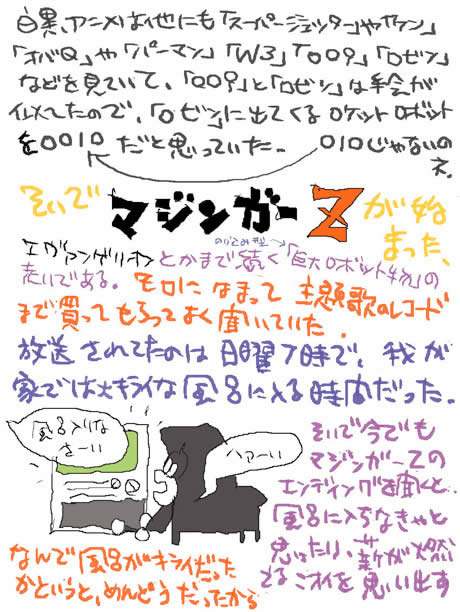 白黒アニメは他にも「スーパージェッター」や「ヤァン」
「オバQ」や「パーマン」「W3」「009」「ロビン」
などを見ていて、「009」と「ロビン」は手会が
似てしたので、「ロビン」に出てくるロケットロボット
を0010だと思っていた。 010じゃないの
ネ。
そいで マジンガーZ が始
まった、
エヴァンゲリオンとかまで続く「巨大ロボット物」の
のりこみ型→
走いである。モロにはまって主題歌のレコード
まで買ってもらってよく聞いていた。
放送されてたのは日曜7時で、我が
家では大キライな風呂に入る時間だった。
風呂入りな
さーい
ハァーい
そいで今でも
マジンガーZの
エンディングを聞くと
風呂に入らなきゃと
思ったり、薪が燃
えるニオイを思い出す
なんで風呂がキライだった
かというと、めんどうだったから